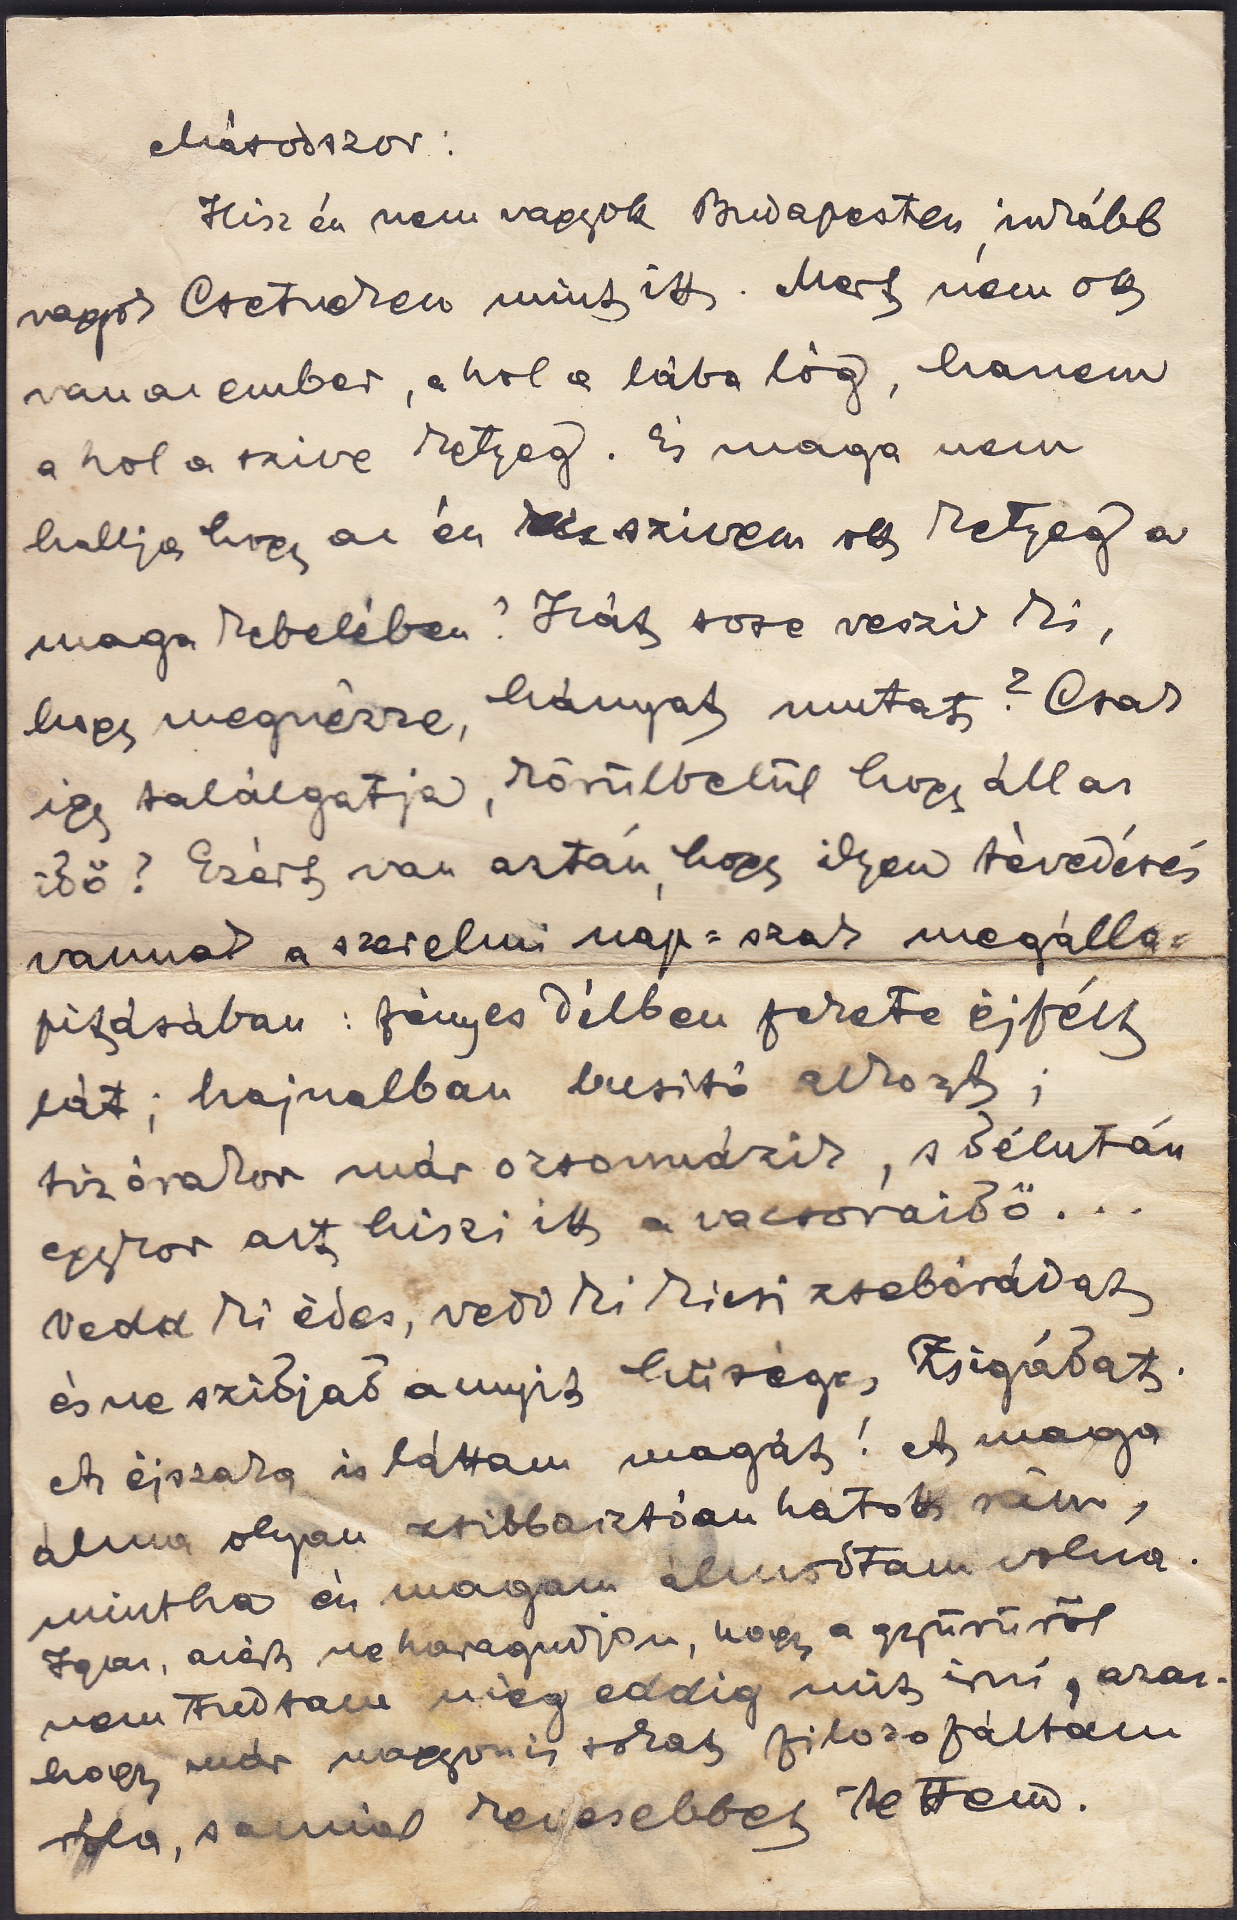 Másodszor:
Hisz én nem vagyok Budapesten, inkább
vagyok Csetneken mint itt. Mert nem ott
van az ember, a hol a lába lóg, hanem
a hol a szive ketyeg. És maga nem
hallja hogy az én szivem ott ketyeg a
maga kebelében? Hát sose veszi ki,
hogy megnézze, hányat mutat? Csak
igy találgatja, körülbelül hogy áll az
idő? Ezért van aztán, hogy ilyen tévedések
vannak a szerelmi nap=szak megálla=
pitásában: fényes délben fekete éjfélt
lát; hajnalban busitó alkonyt;
tiz órakor már ozsonnázik, s délután
egykor azt hiszi itt a vacsoraidő...
Vedd ki édes, vedd ki kicsi zsebórádat
és ne szidjad annyit hűséges Zsigádat.
Az éjszaka is láttam magát! Az maga
álma olyan zsibbasztóan hatott rám,
mintha én magam álmodtam volna.
Igaz, azért ne haragudjon, hogy a gyűrűről
nem tudtam még eddig mit irni, azaz=
hogy már nagyon is sokat filozofáltam
róla, semmit kevesebbet tettem.